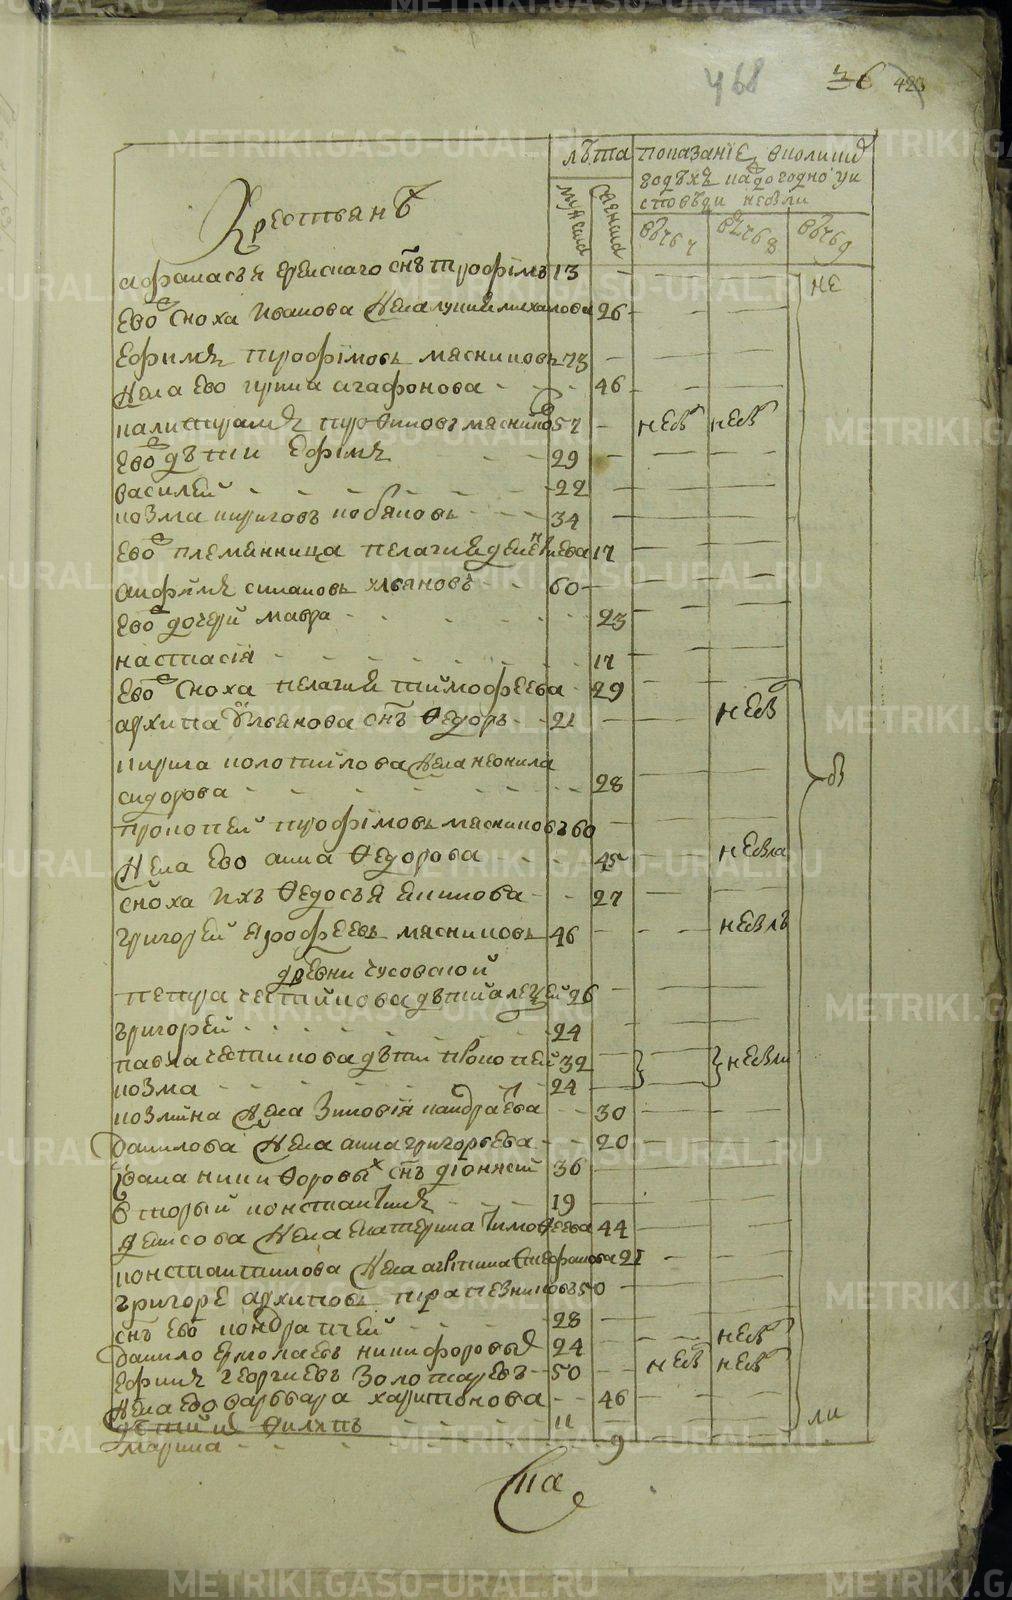 468 36 423
лѣта показание, в которых
годѣхъ надогодно у и
споведи небыли
Крестьянъ
мужеска женска
в 1797 в 1798 в 1799
афанасья еремскаго снъ трофимъ 13 не
ево сноха иванова жена лукия михаилова 26
ефимъ трофимовъ мясниковъ 73
жена ево ирина агафонова 46
калистратъ трофимовъ мясниковъ 57 небы небы
ево дѣти ефимъ 29
василей 22
козма кириловъ кобяковъ 34
ево племянница пелагия дементиева 17
анфимъ симановъ ульяновъ 60
ево дочери мавра 23
настасія 17
ево сноха пелагия тимофеева 29
архипа ульянова снъ федоръ 21 небы
кирила колотилова жена неонила
сидорова 28 бы
прокопей трофимовъ мясниковъ 60
жена ево анна федорова 45 небыла
сноха ихъ федосья якимова 27
григорей ерофеевъ мясниковъ 46 небылъ
дрѣвни чусовской
петра честикова дѣти алексей 26
григорей 24
павла честикова дѣти прокопей 32 небыли
козма 24
козмина жена зиновія кандратева 30
данилова жена анна григорьева 20
ивана никифоровых снъ діонисей 36
вторый константинъ 19
денисова жена екатерина тимофеева 44
константинова жена агрипина стефанова 21
григоре архиповъ трапезниковъ 50
снъ ево кондратей 28
данило ермолаевъ никифоровыхъ 24 небы
ефимъ георгиевъ золотаревъ 50 небы небы
жена ево варвара харитонова 46
дѣти ихъ филипъ 11 ли
марина 9